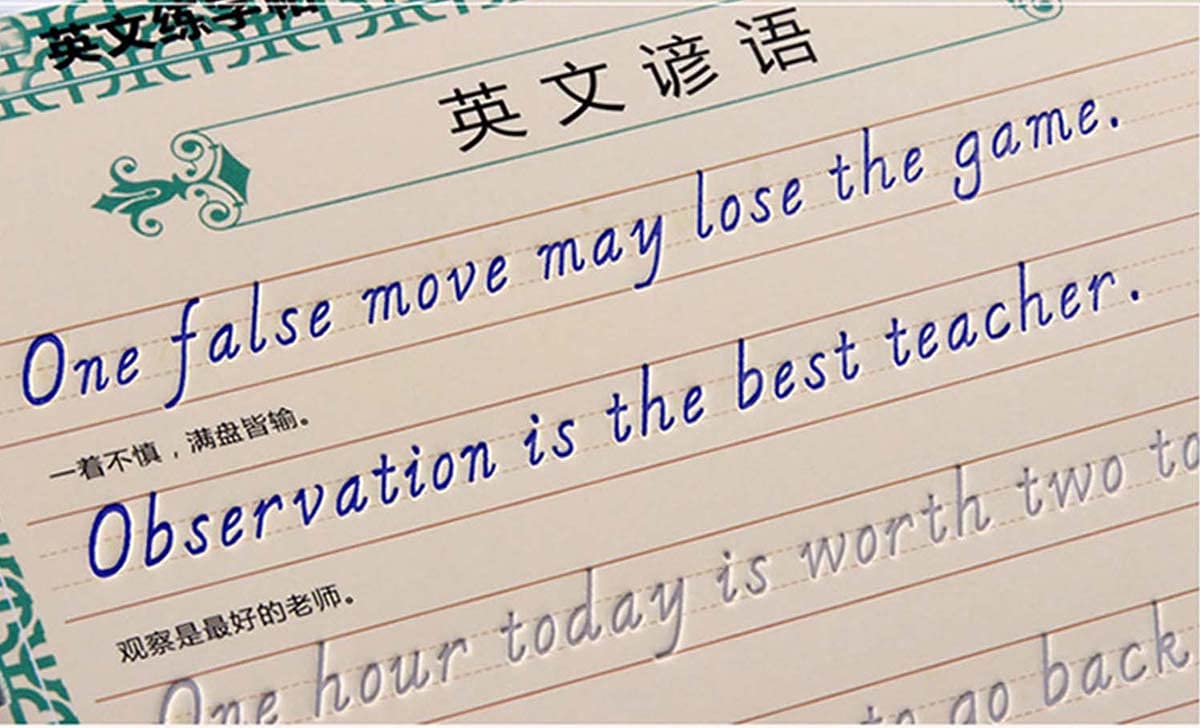 英文练字帖
英文谚语
One false move may lose the game.
一着不慎，满盘皆输。
Observation is the best teacher.
观察是最好的老师。
One hour today is worth two to
to go back